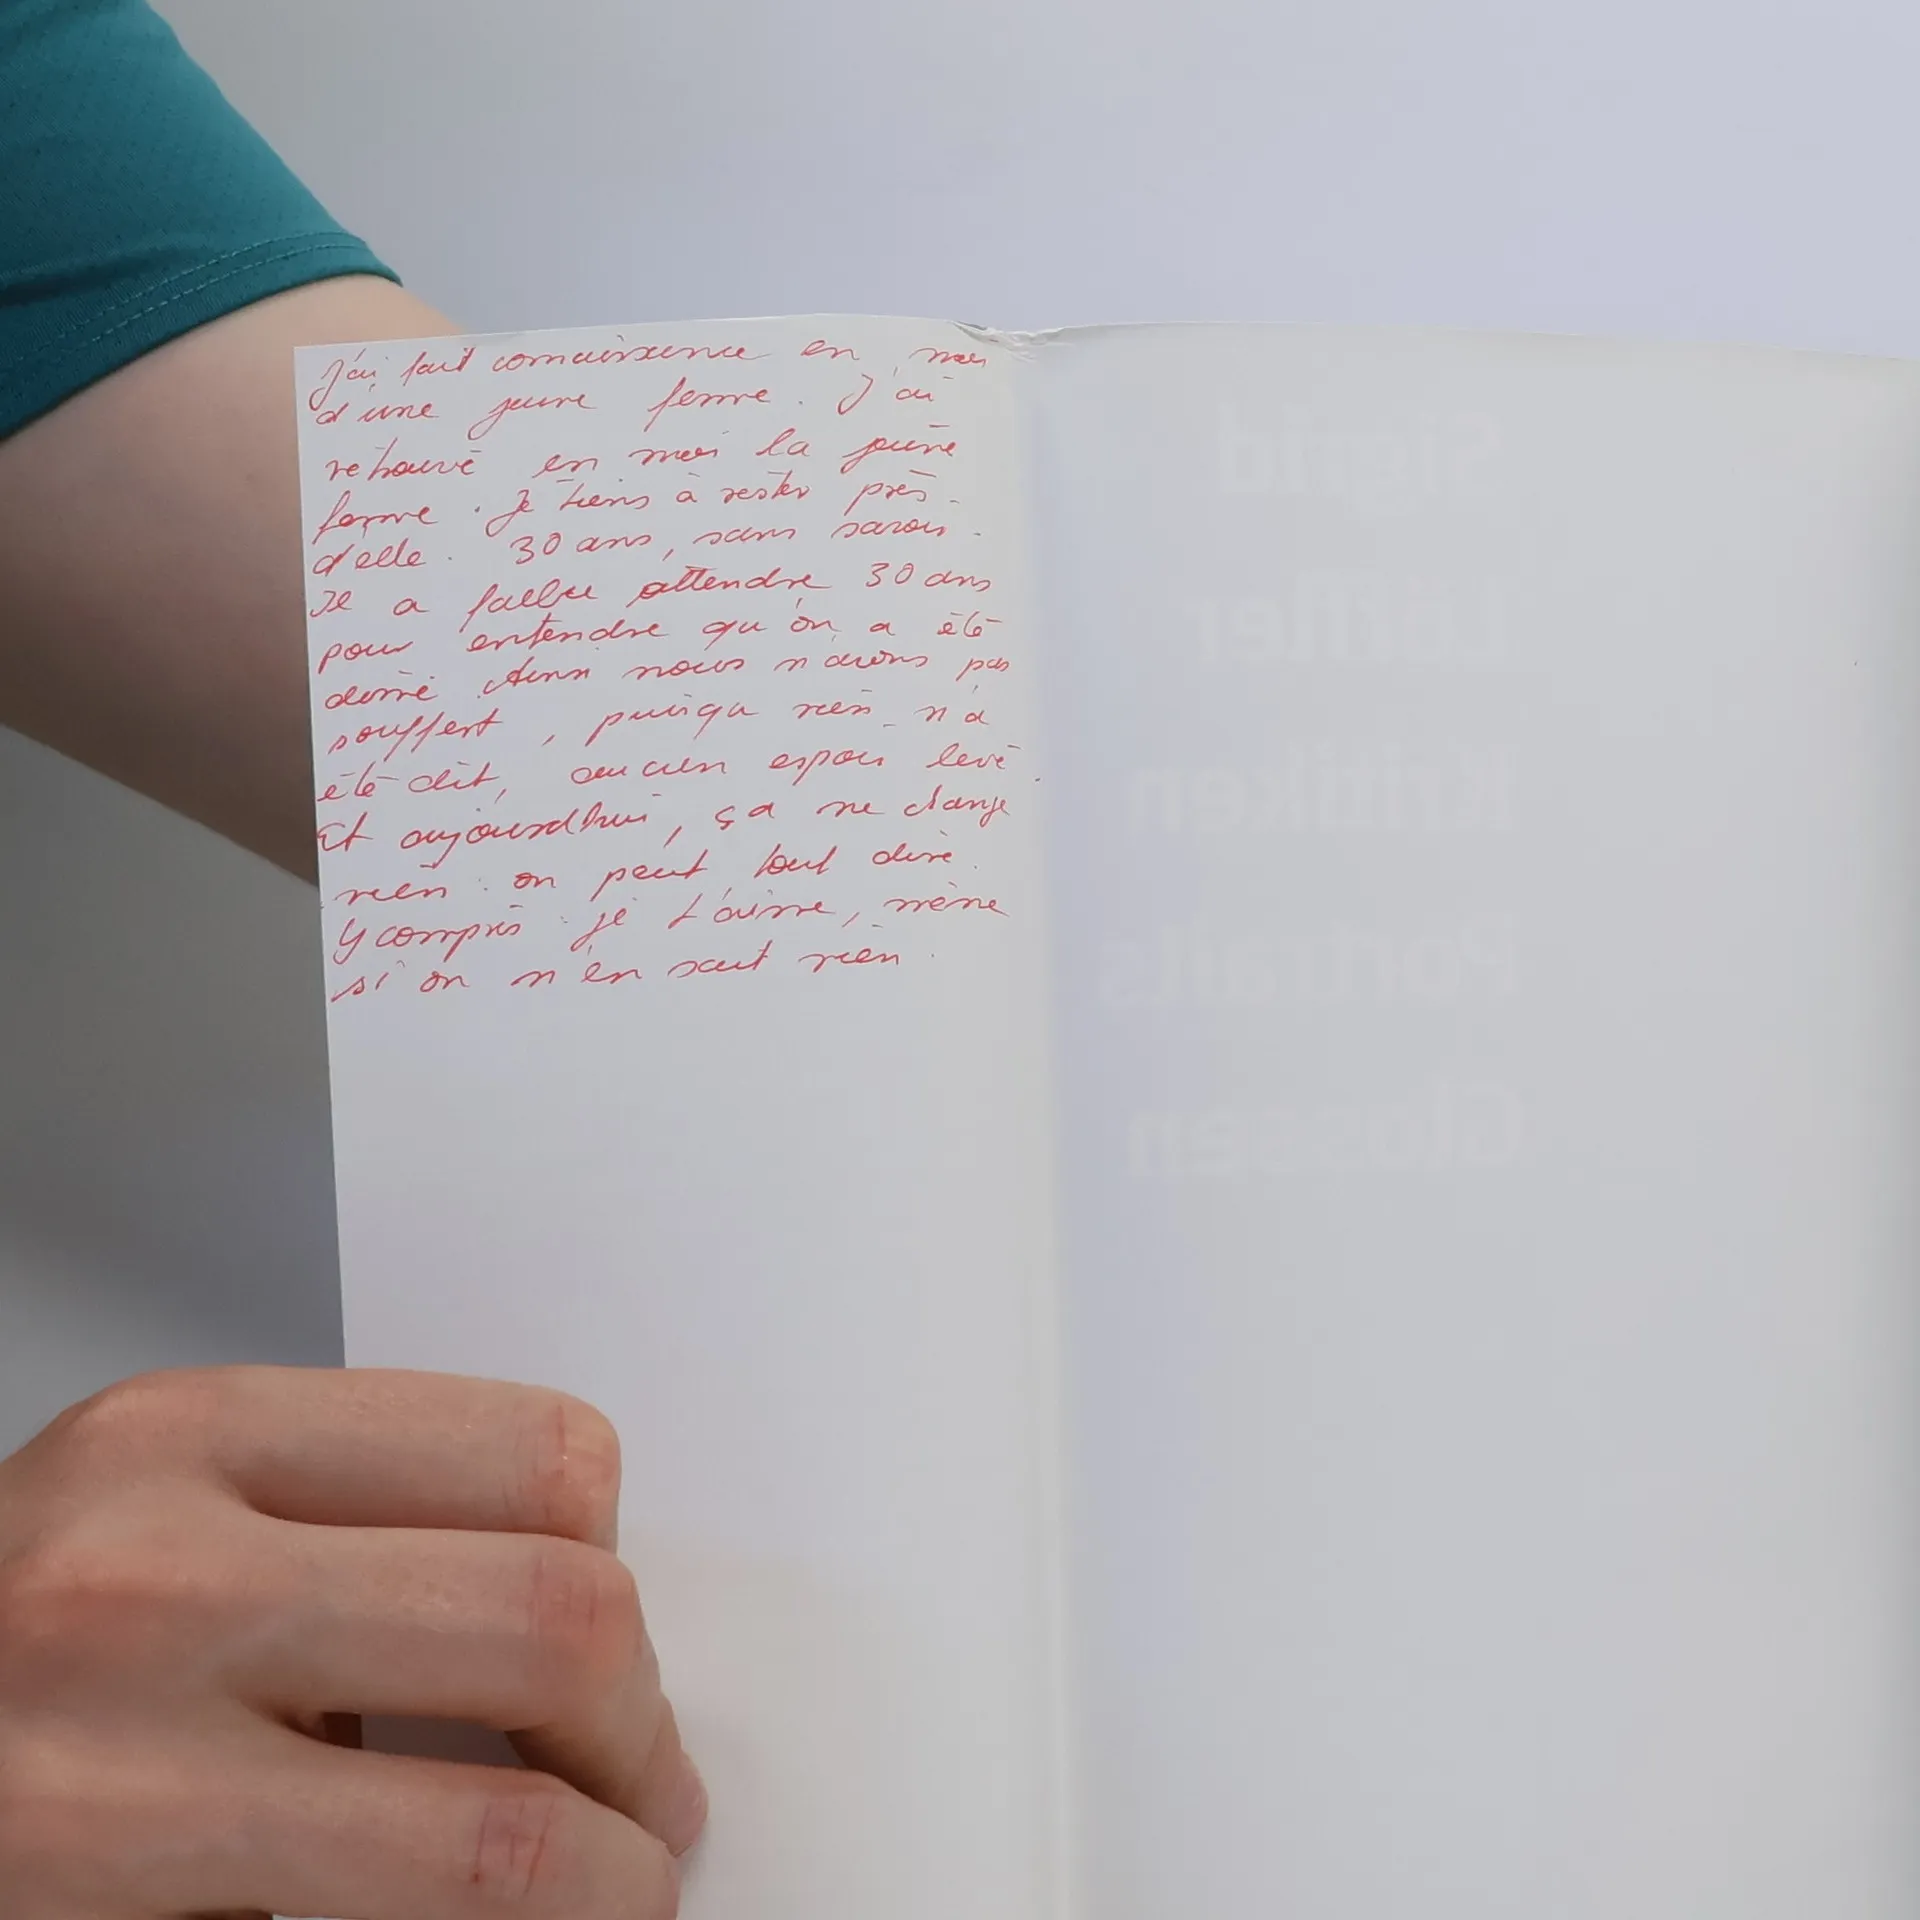 J'ai fait connaissance en moi
d'une jeune femme. J'ai
retrouvé en moi la jeune
femme. Je tiens à rester près
d'elle. 30 ans, sans savoir.
Il a fallu attendre 30 ans
pour entendre qu'on a été
aimé. Ainsi nous n'avons pas
souffert, puisqu rien n'a
été dit, aucun espoir levé.
Et aujourd'hui, ça ne change
rien : on peut tout dire.
Y compris : je t'aime, même
si on n'en sait rien.
Sigrid
Löffler
Kritiken
Portraits
Glossen